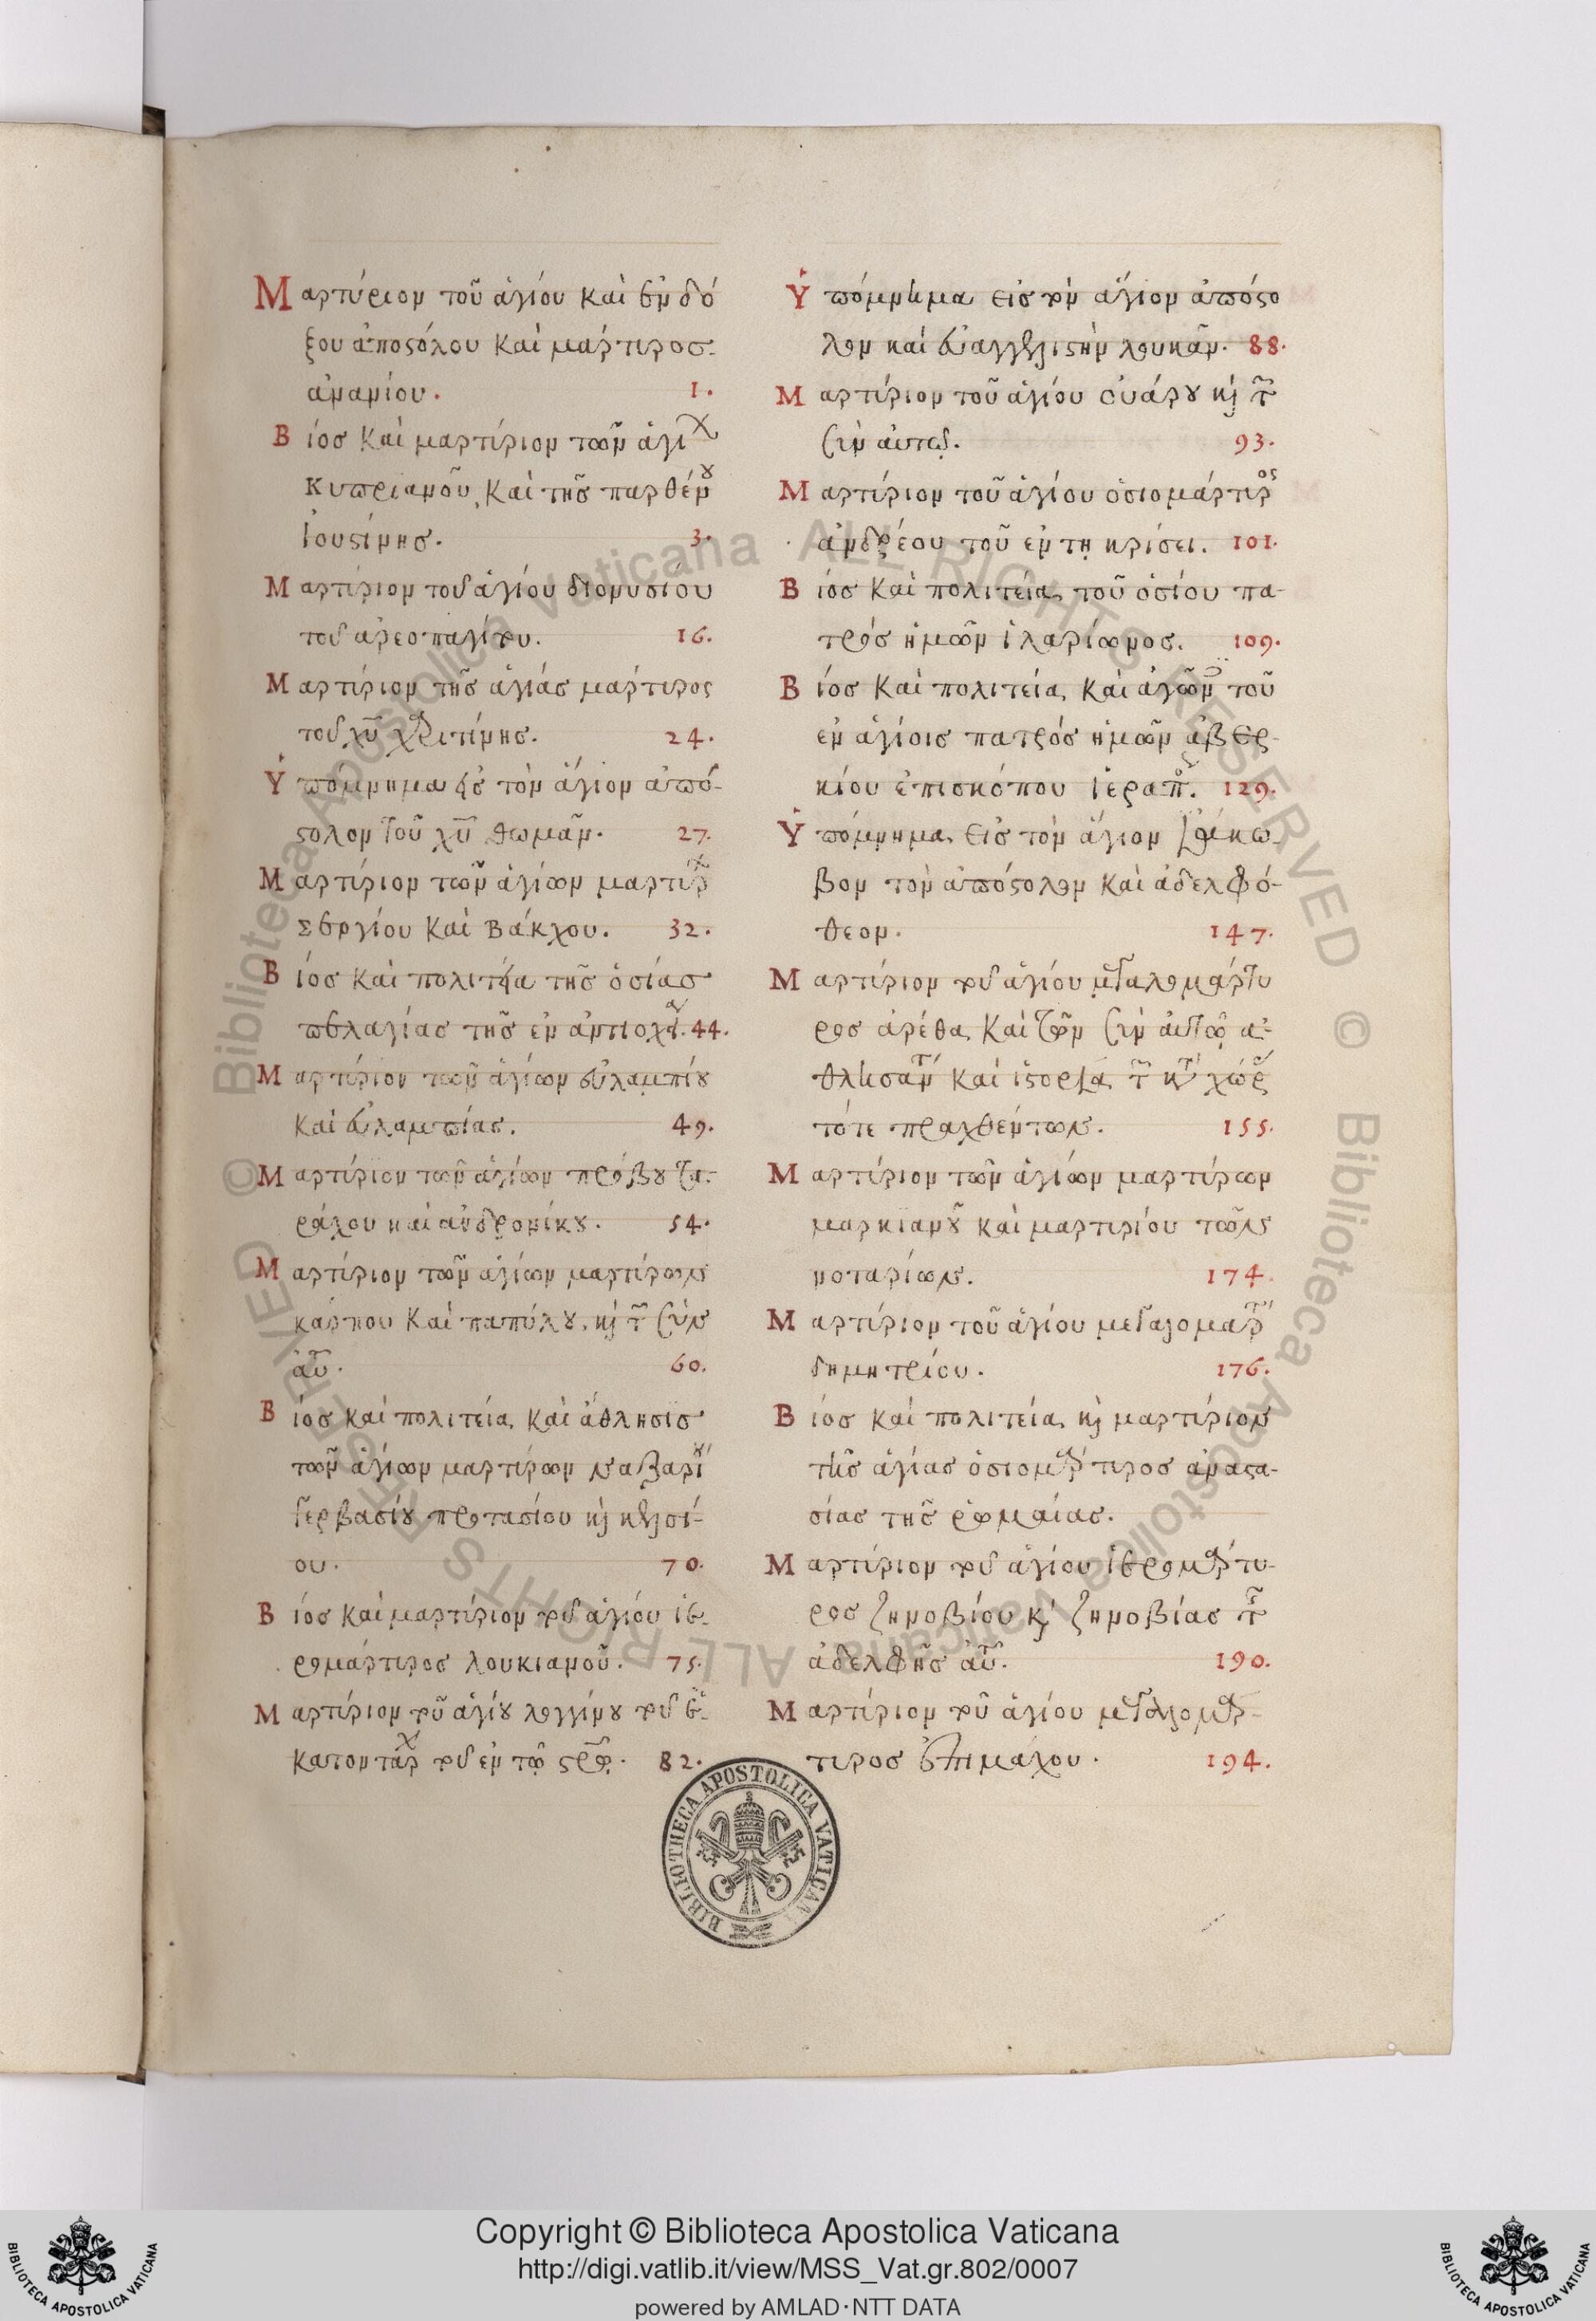 Μαρτύριον τοῦ ἁγίου καὶ ἐνδό
ξου ἀποστόλου καὶ μάρτιρος
ἀνανίου. 1.
Βίος καὶ μαρτίριον τῶν ἁγί
Κυπριανοῦ, καὶ τῆς παρθέν
Ἰουστίνης. 3.
Μαρτίριον τοῦ ἁγίου διονυσίου
τοῦ ἀρεοπαγίτου. 16.
Μαρτίριον τῆς ἁγίας μάρτιρος
τοῦ χῦ χαριτίνης. 24.
Ὑπόμνημα εἰς τὸν ἅγιον ἀπό-
στολον τοῦ χῦ θωμᾶν. 27.
Μαρτίριον τῶν ἁγίων μαρτίρ
Σεργίου καὶ Βάκχου. 32.
Βίος καὶ πολιτεία τῆς ὁσίας
πελαγίας τῆς ἐν ἀντιοχεί. 44.
Μαρτίριον τῶν ἁγίων εὐλαμπίου
καὶ εὐλαμπίας. 49.
Μαρτίριον τῶν ἁγίων πρόβου τα-
ράχου καὶ ἀνδρονίκου. 54.
Μαρτίριον τῶν ἁγίων μαρτίρων
κάρπου καὶ παπύλου, κὶ τ σὺν
αὐτ. 60.
Βίος καὶ πολιτεία, καὶ ἄθλησις
τῶν ἁγίων μαρτίρων ναζαρί
γερβασίου προτασίου κὶ κελσί-
ου. 70.
Βίος καὶ μαρτίριον τοῦ ἁγίου ἱε-
ρομάρτιρος λουκιανοῦ. 75.
Μαρτίριον τοῦ ἁγίου λογγίνου τοῦ ἑ-
κατοντάρχ τοῦ ἐν τῷ στρῷ. 82.
Ὑπόμνημα εἰς τὸν ἅγιον ἀπόστο
λον καὶ εὐαγγελιστὴν λουκᾶν. 88.
Μαρτίριον τοῦ ἁγίου οὐάρου κὶ τ
σὺν αὐτῷ. 93.
Μαρτίριον τοῦ ἁγίου ὁσιομάρτιρος
ἀνδρέου τοῦ ἐν τῇ κρίσει. 101.
Βίος καὶ πολιτεία, τοῦ ὁσίου πα-
τρός ἡμῶν ἱλαρίωνος. 109.
Βίος καὶ πολιτεία, καὶ ἀγῶν τοῦ
ἐν ἁγίοις πατρός ἡμῶν ἀβερ-
κίου ἐπισκόπου Ἱεραπ. 129.
Ὑπόμνημα, εἰς τὸν ἅγιον Ἰάκω-
βον τὸν ἀπόστολον καὶ ἀδελφό-
θεον. 147.
Μαρτίριον τοῦ ἁγίου μεγαλομάρτυ
ρος ἀρέθα, καὶ τῶν σὺν αὐτῷ ἀ-
θλησάντ καὶ ἱστορία, τ κατ χώρ
τότε πραχθέντων. 155.
Μαρτίριον τῶν ἁγίων μαρτίρων
μαρκιανοῦ καὶ μαρτιρίου τῶν
νοταρίων. 174.
Μαρτίριον τοῦ ἁγίου μεγαλομάρτ
δημητρίου. 176.
Βίος καὶ πολιτεία, κὶ μαρτίριον
τῆς ἁγίας ὁσιομάρτιρος ἀναστα-
σίας τῆς ῥωμαίας.
Μαρτίριον τοῦ ἁγίου ἱερομάρτυ-
ρος ζηνοβίου κὶ ζηνοβίας τ
ἀδελφῆς αὐτ. 190.
Μαρτίριον τοῦ ἁγίου μεγαλομάρ-
τιρος ἐπιμάχου. 194.
BIBLIOTHECA APOSTOLICA VATICANA
© Biblioteca Apostolica Vaticana ALL RIGHTS RESERVED
Copyright © Biblioteca Apostolica Vaticana
http://digi.vatlib.it/view/MSS_Vat.gr.802/0007
powered by AMLAD·NTT DATA
BIBLIOTECA APOSTOLICA VATICANA
BIBLIOTECA APOSTOLICA VATICANA